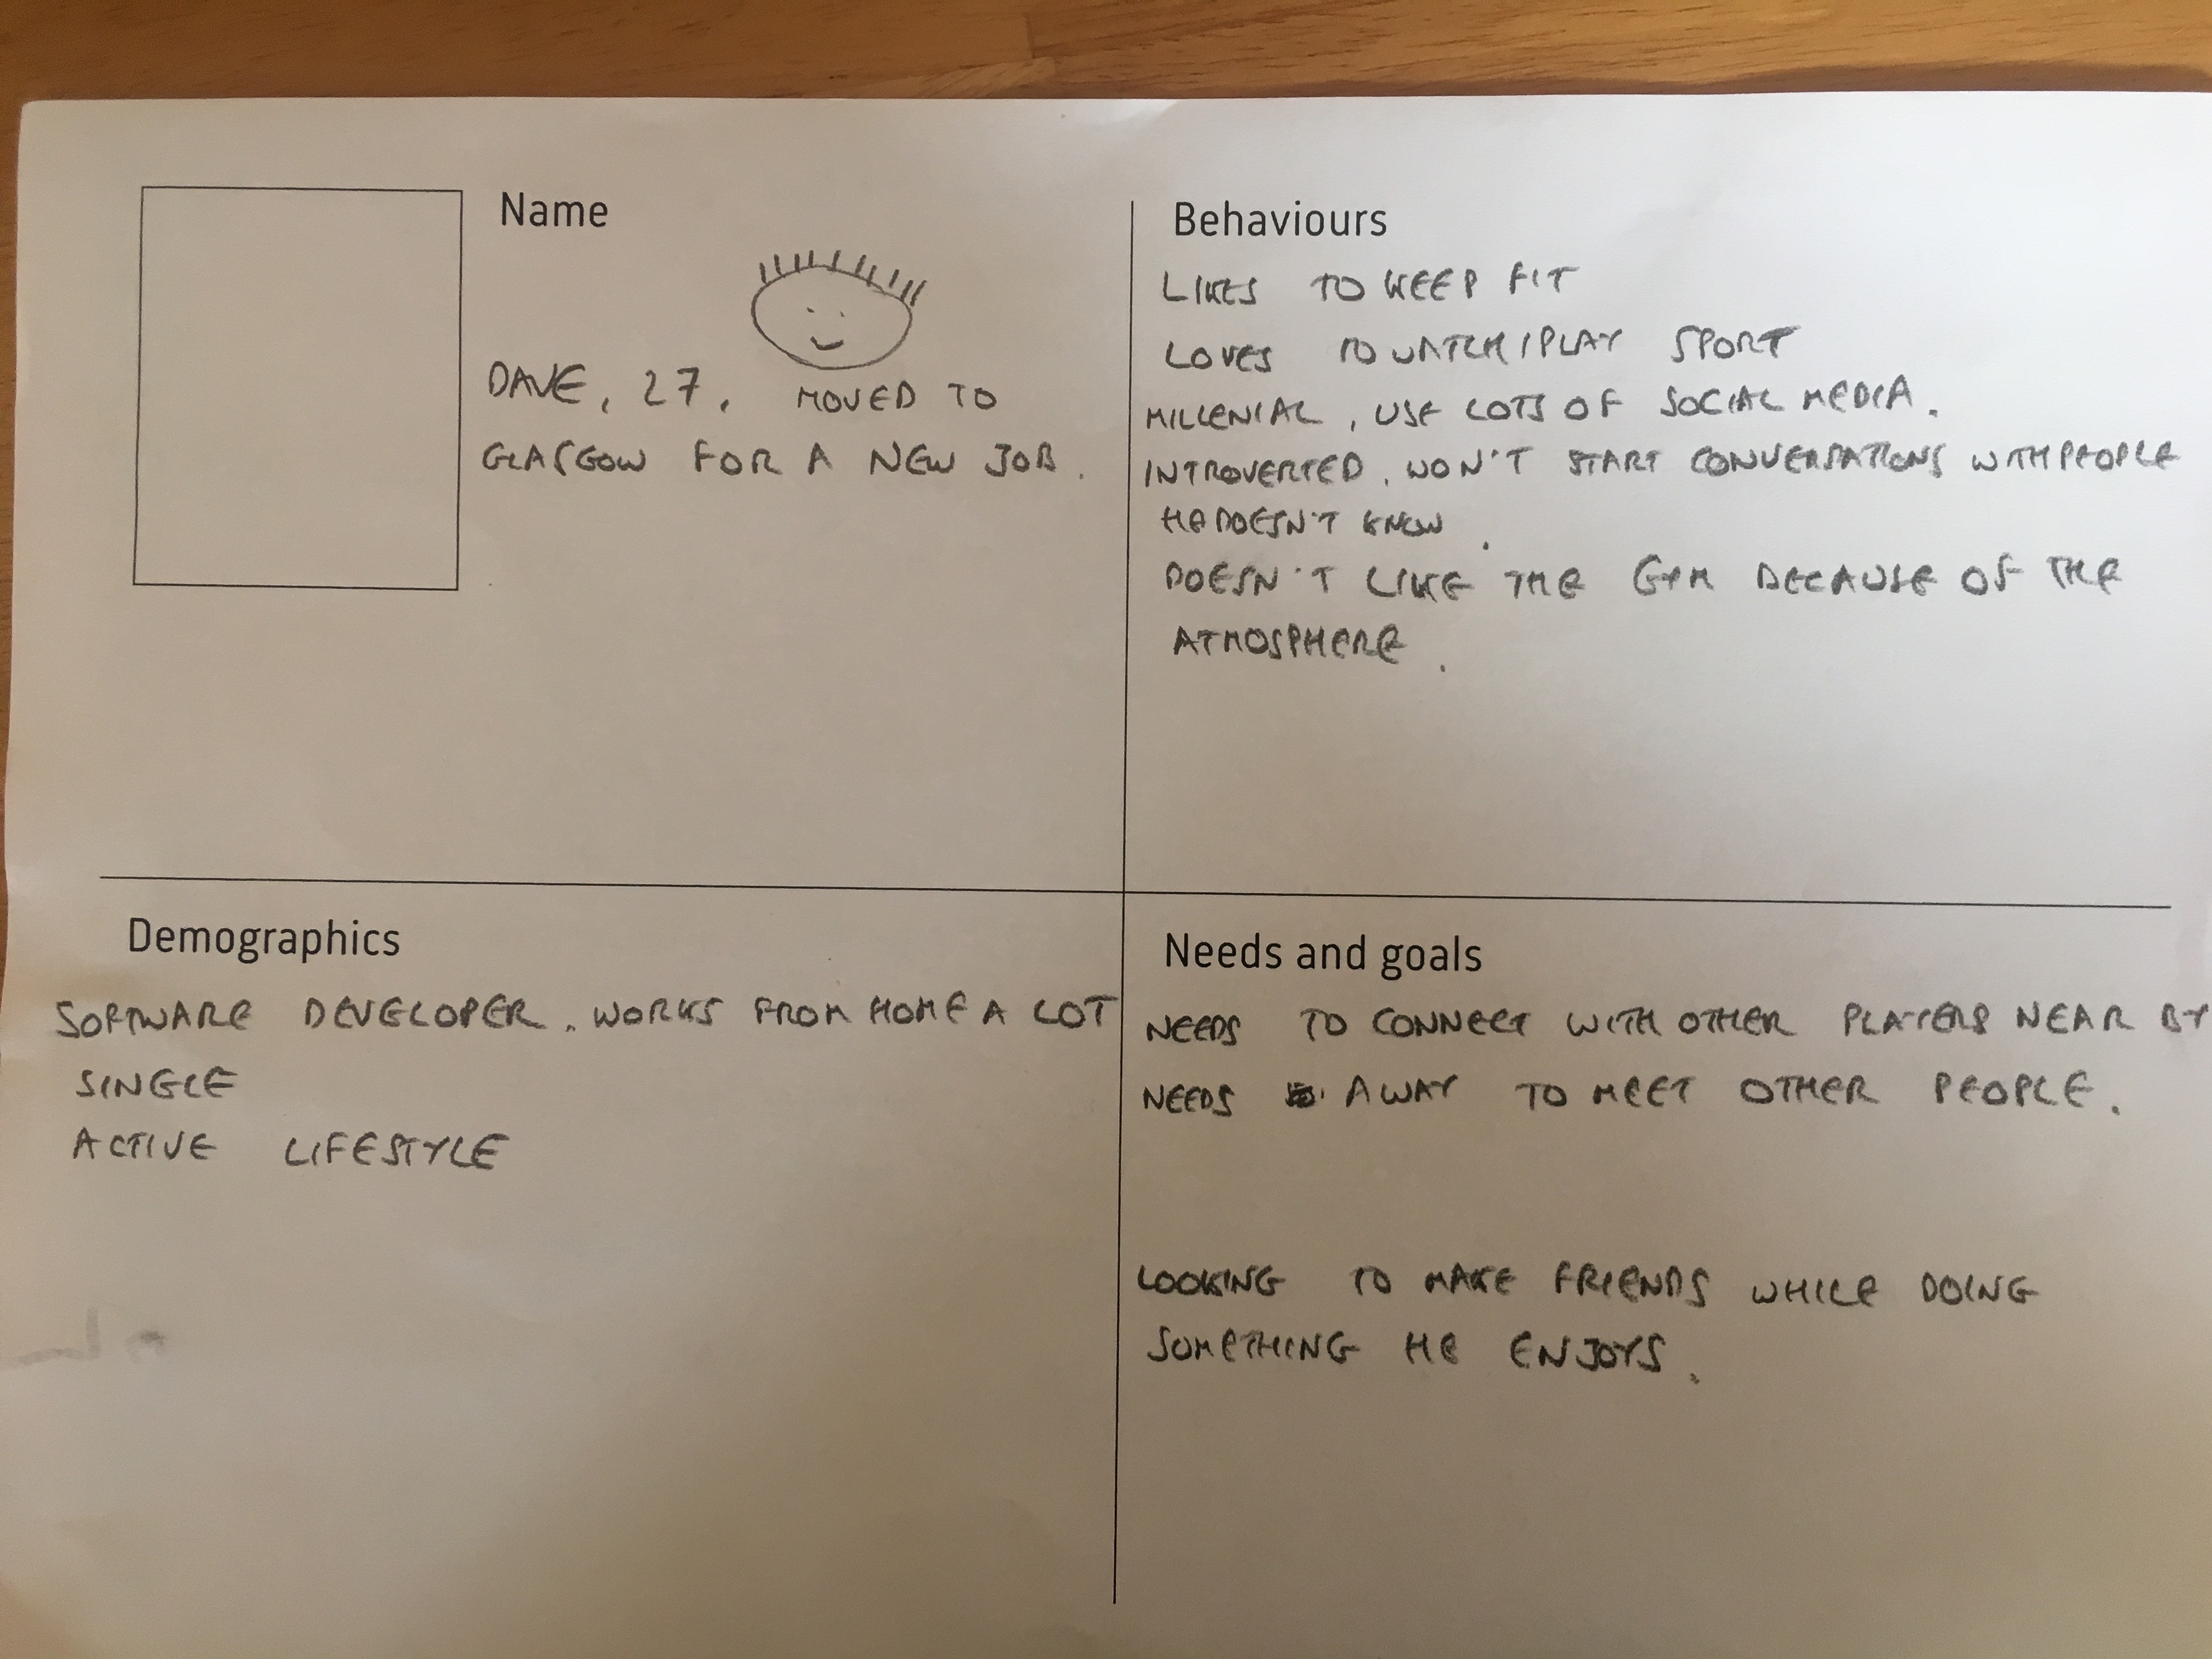 Name
DAVE, 27, MOVED TO
GLASGOW FOR A NEW JOB.
Behaviours
LIKES TO KEEP FIT
LOVES TO WATCH / PLAY SPORT
MILLENIAL, USE LOTS OF SOCIAL MEDIA.
INTROVERTED, WON'T START CONVERSATIONS WITH PEOPLE
HE DOESN'T KNOW.
DOESN'T LIKE THE GYM BECAUSE OF THE
ATMOSPHERE.
Demographics
SOFTWARE DEVELOPER. WORKS FROM HOME A LOT
SINGLE
ACTIVE LIFESTYLE
Needs and goals
NEEDS TO CONNECT WITH OTHER PLAYERS NEAR BY
NEEDS A WAY TO MEET OTHER PEOPLE.
LOOKING TO MAKE FRIENDS WHILE DOING
SOMETHING HE ENJOYS.